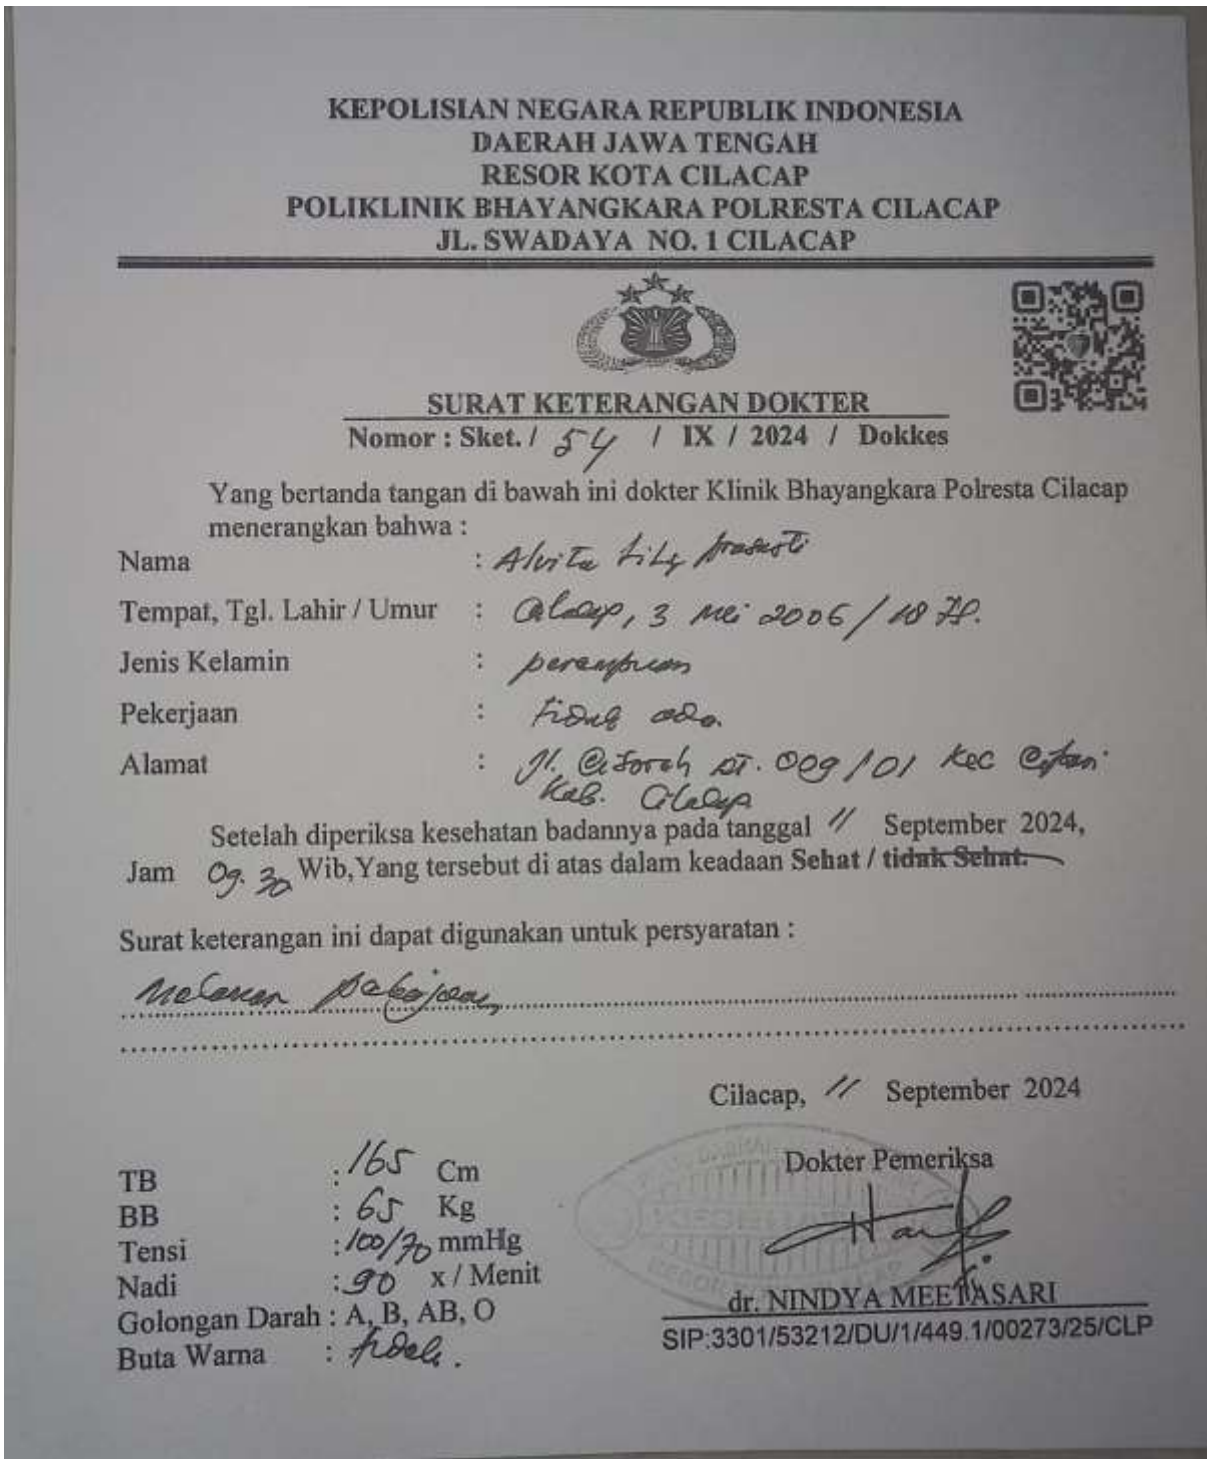 KEPOLISIAN NEGARA REPUBLIK INDONESIA
DAERAH JAWA TENGAH
RESOR KOTA CILACAP
POLIKLINIK BHAYANGKARA POLRESTA CILACAP
JL. SWADAYA NO. 1 CILACAP
SURAT KETERANGAN DOKTER
Nomor : Sket. / 54 / IX / 2024 / Dokkes
Yang bertanda tangan di bawah ini dokter Klinik Bhayangkara Polresta Cilacap
menerangkan bahwa :
Nama : Alvita
Tempat, Tgl. Lahir / Umur : Cilacap, 3 Mei 2006 / 18 Th.
Jenis Kelamin : perempuan
Pekerjaan : tidak ada.
Alamat : Jl. RT. 009 / 01 Kec
Kab. Cilacap
Setelah diperiksa kesehatan badannya pada tanggal 11 September 2024,
Jam 09.30 Wib,Yang tersebut di atas dalam keadaan Sehat / tidak Sehat.
Surat keterangan ini dapat digunakan untuk persyaratan :
Melamar pekerjaan
Cilacap, 11 September 2024
Dokter Pemeriksa
TB : 165 Cm
BB : 65 Kg
Tensi : 100/70 mmHg
Nadi : 90 x / Menit
Golongan Darah : A, B, AB, O
Buta Warna : tidak.
dr. NINDYA MEETASARI
SIP:3301/53212/DU/1/449.1/00273/25/CLP